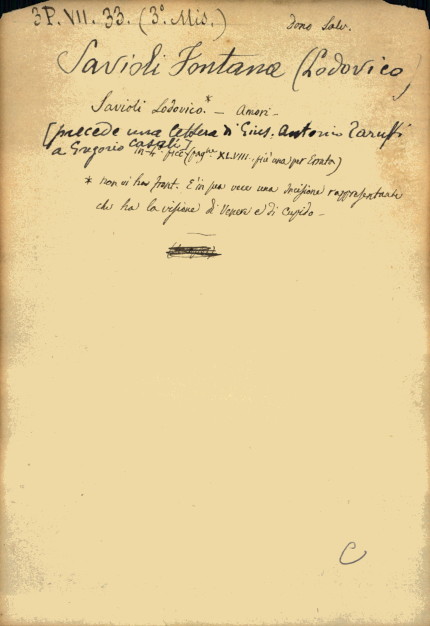 3P. VII. 33. (3° Mis.)
Dono Salv.
Savioli Fontana (Lodovico)
Savioli Lodovico.* — Amori. —
[precede una lettera di Gius. Antonio Taruffi
a Gregorio Casali]
in-4° picc (pagne XLVIII. più una per Errata)
* non vi ha front. E in sua vece una Incisione rappresentante
che ha la visione di Venere e di Cupido —
C